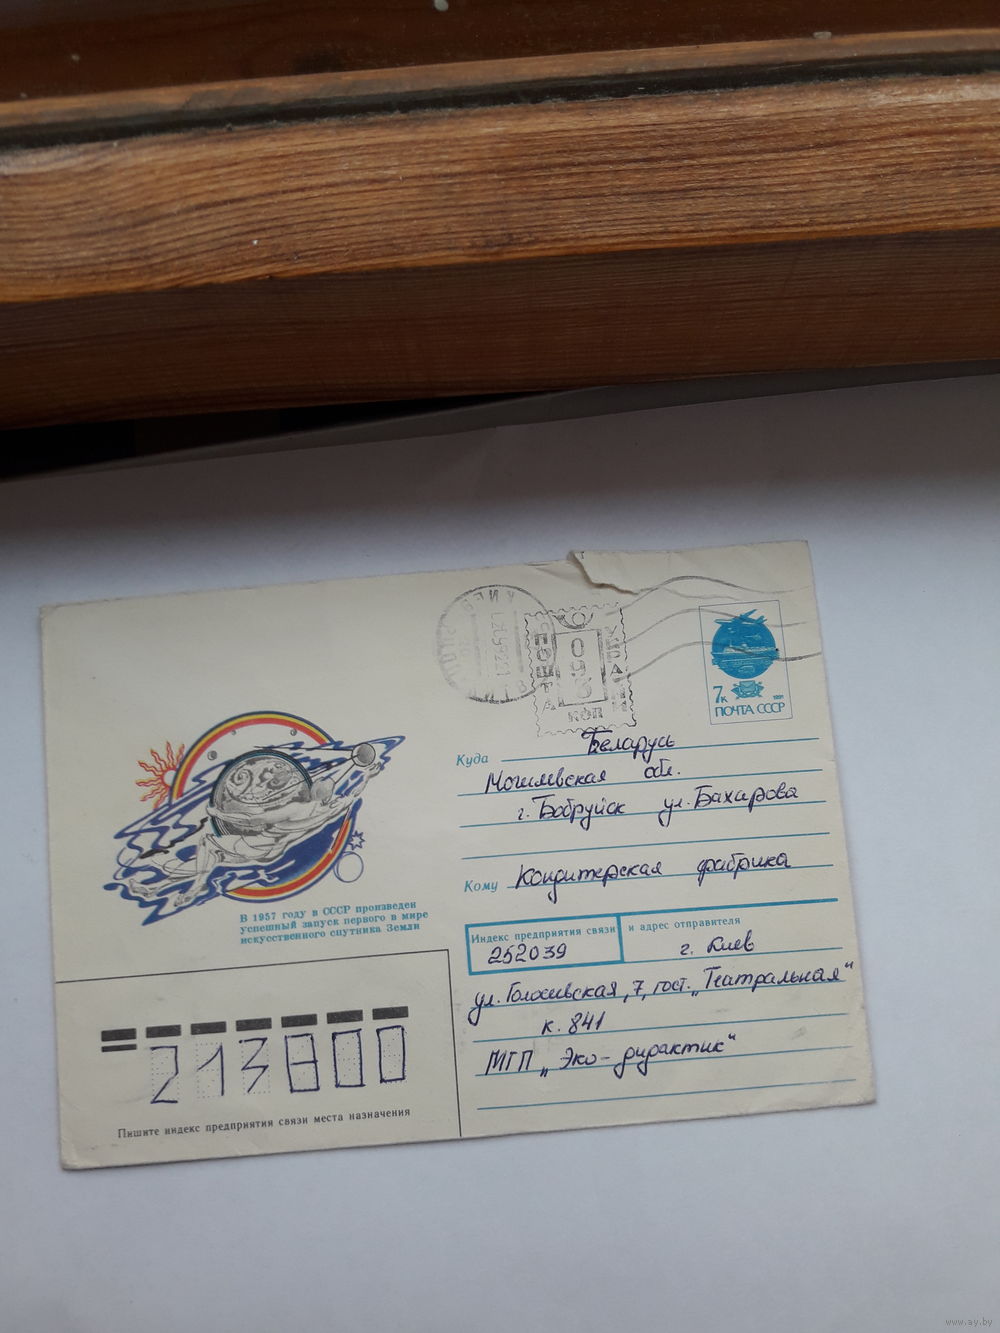 УКРАЇНИ
ПОШТА
096
КОП
7к
1991
ПОЧТА СССР
Куда Беларусь
Могилевская обл.
г. Бобруйск ул. Бахарова
Кому Кондитерская фабрика
В 1957 году в СССР произведен
успешный запуск первого в мире
искусственного спутника Земли
Индекс предприятия связи и адрес отправителя
252039 г. Киев
ул. Голосеевская, 7, гост. „Театральная“
к. 841
МГП „Эко-дидактик“
213800
Пишите индекс предприятия связи места назначения
www.ay.by